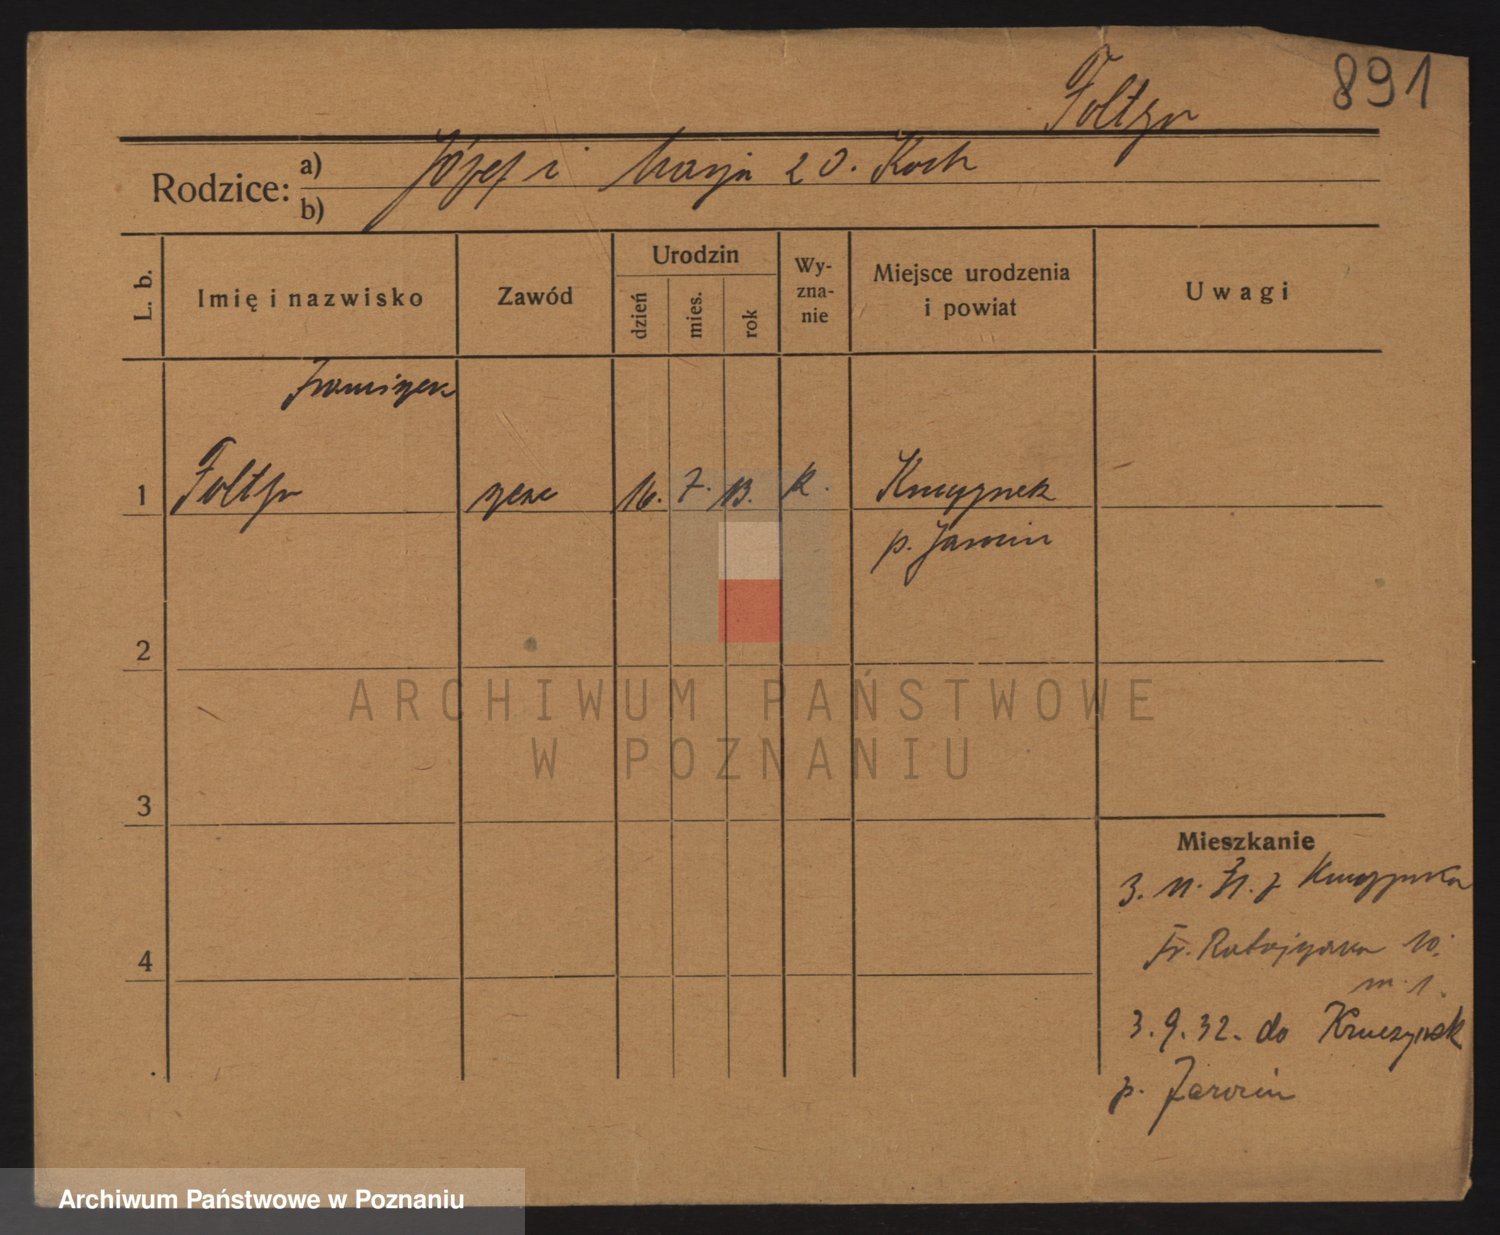 891
Foltyn
Rodzice: a) Józef i Marja z d. Koch
b)
L. b.
Imię i nazwisko
Zawód
Urodzin
dzień
mies.
rok
Wy-
zna-
nie
Miejsce urodzenia
i powiat
Uwagi
Franciszek
1 Foltyn 16. 7. 13. k. Kruczynek
p. Jarocin
2
3
4
Mieszkanie
3. 11. 31. z Kruczynka
Fr. Ratajczaka 10.
m. 1.
3.9.32. do Kruczynek
p. Jarocin
ARCHIWUM PAŃSTWOWE
W POZNANIU
Archiwum Państwowe w Poznaniu